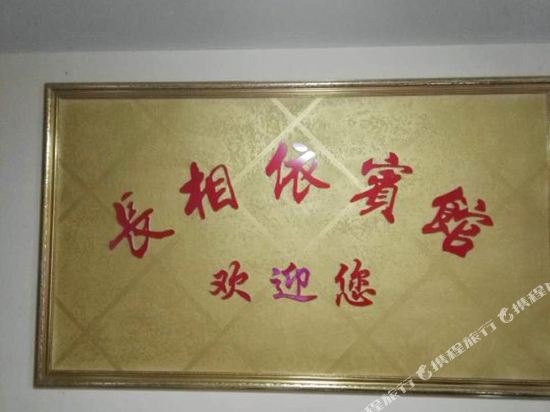 長相依賓館
欢迎您
携程旅行
携程旅行